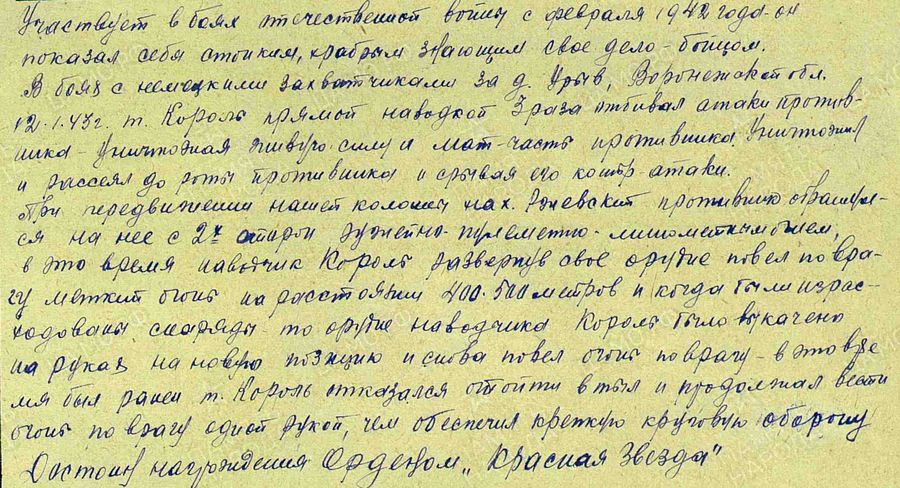 Участвует в боях отечественной войны с февраля 1942 года - он
показал себя стойким, храбрым знающим свое дело - бойцом.
В боях с немецкими захватчиками за д. Урыв, Воронежской обл.
12.1.43г. т. Король прямой наводкой 3 раза отбивал атаки против-
ника - уничтожая живую силу и мат-часть противника. Уничтожил
и рассеял до роты противника и срывая его контр атаки.
При передвижении нашей колонны на х. Ржевский противник обрушил-
ся на нее с 2х сторон ружейно-пулеметно-минометным огнем,
в это время наводчик Король развернув свое орудие повел по вра-
гу меткий огонь на расстоянии 400-500 метров и когда были израс-
ходованы снаряды - то орудие наводчика Король было выкачено
на руках на новую позицию и снова повел огонь по врагу - в это вре
мя был ранен т. Король отказался отойти в тыл и продолжал вести
огонь по врагу одной рукой, чем обеспечил крепкую круговую оборону
Достоин награждения Орденом „Красная Звезда"